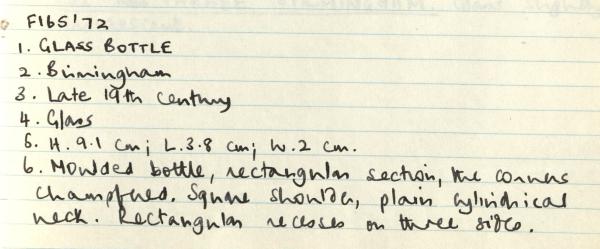 F165'72
1. GLASS BOTTLE
2. Birmingham
3. Late 19th century
4. Glass
5. H. 9.1 cm; L. 3.8 cm; W. 2 cm.
6. Moulded bottle, rectangular section, the corners
champfered. Square shoulder, plain cylindrical
neck. Rectangular recesses on three sides.